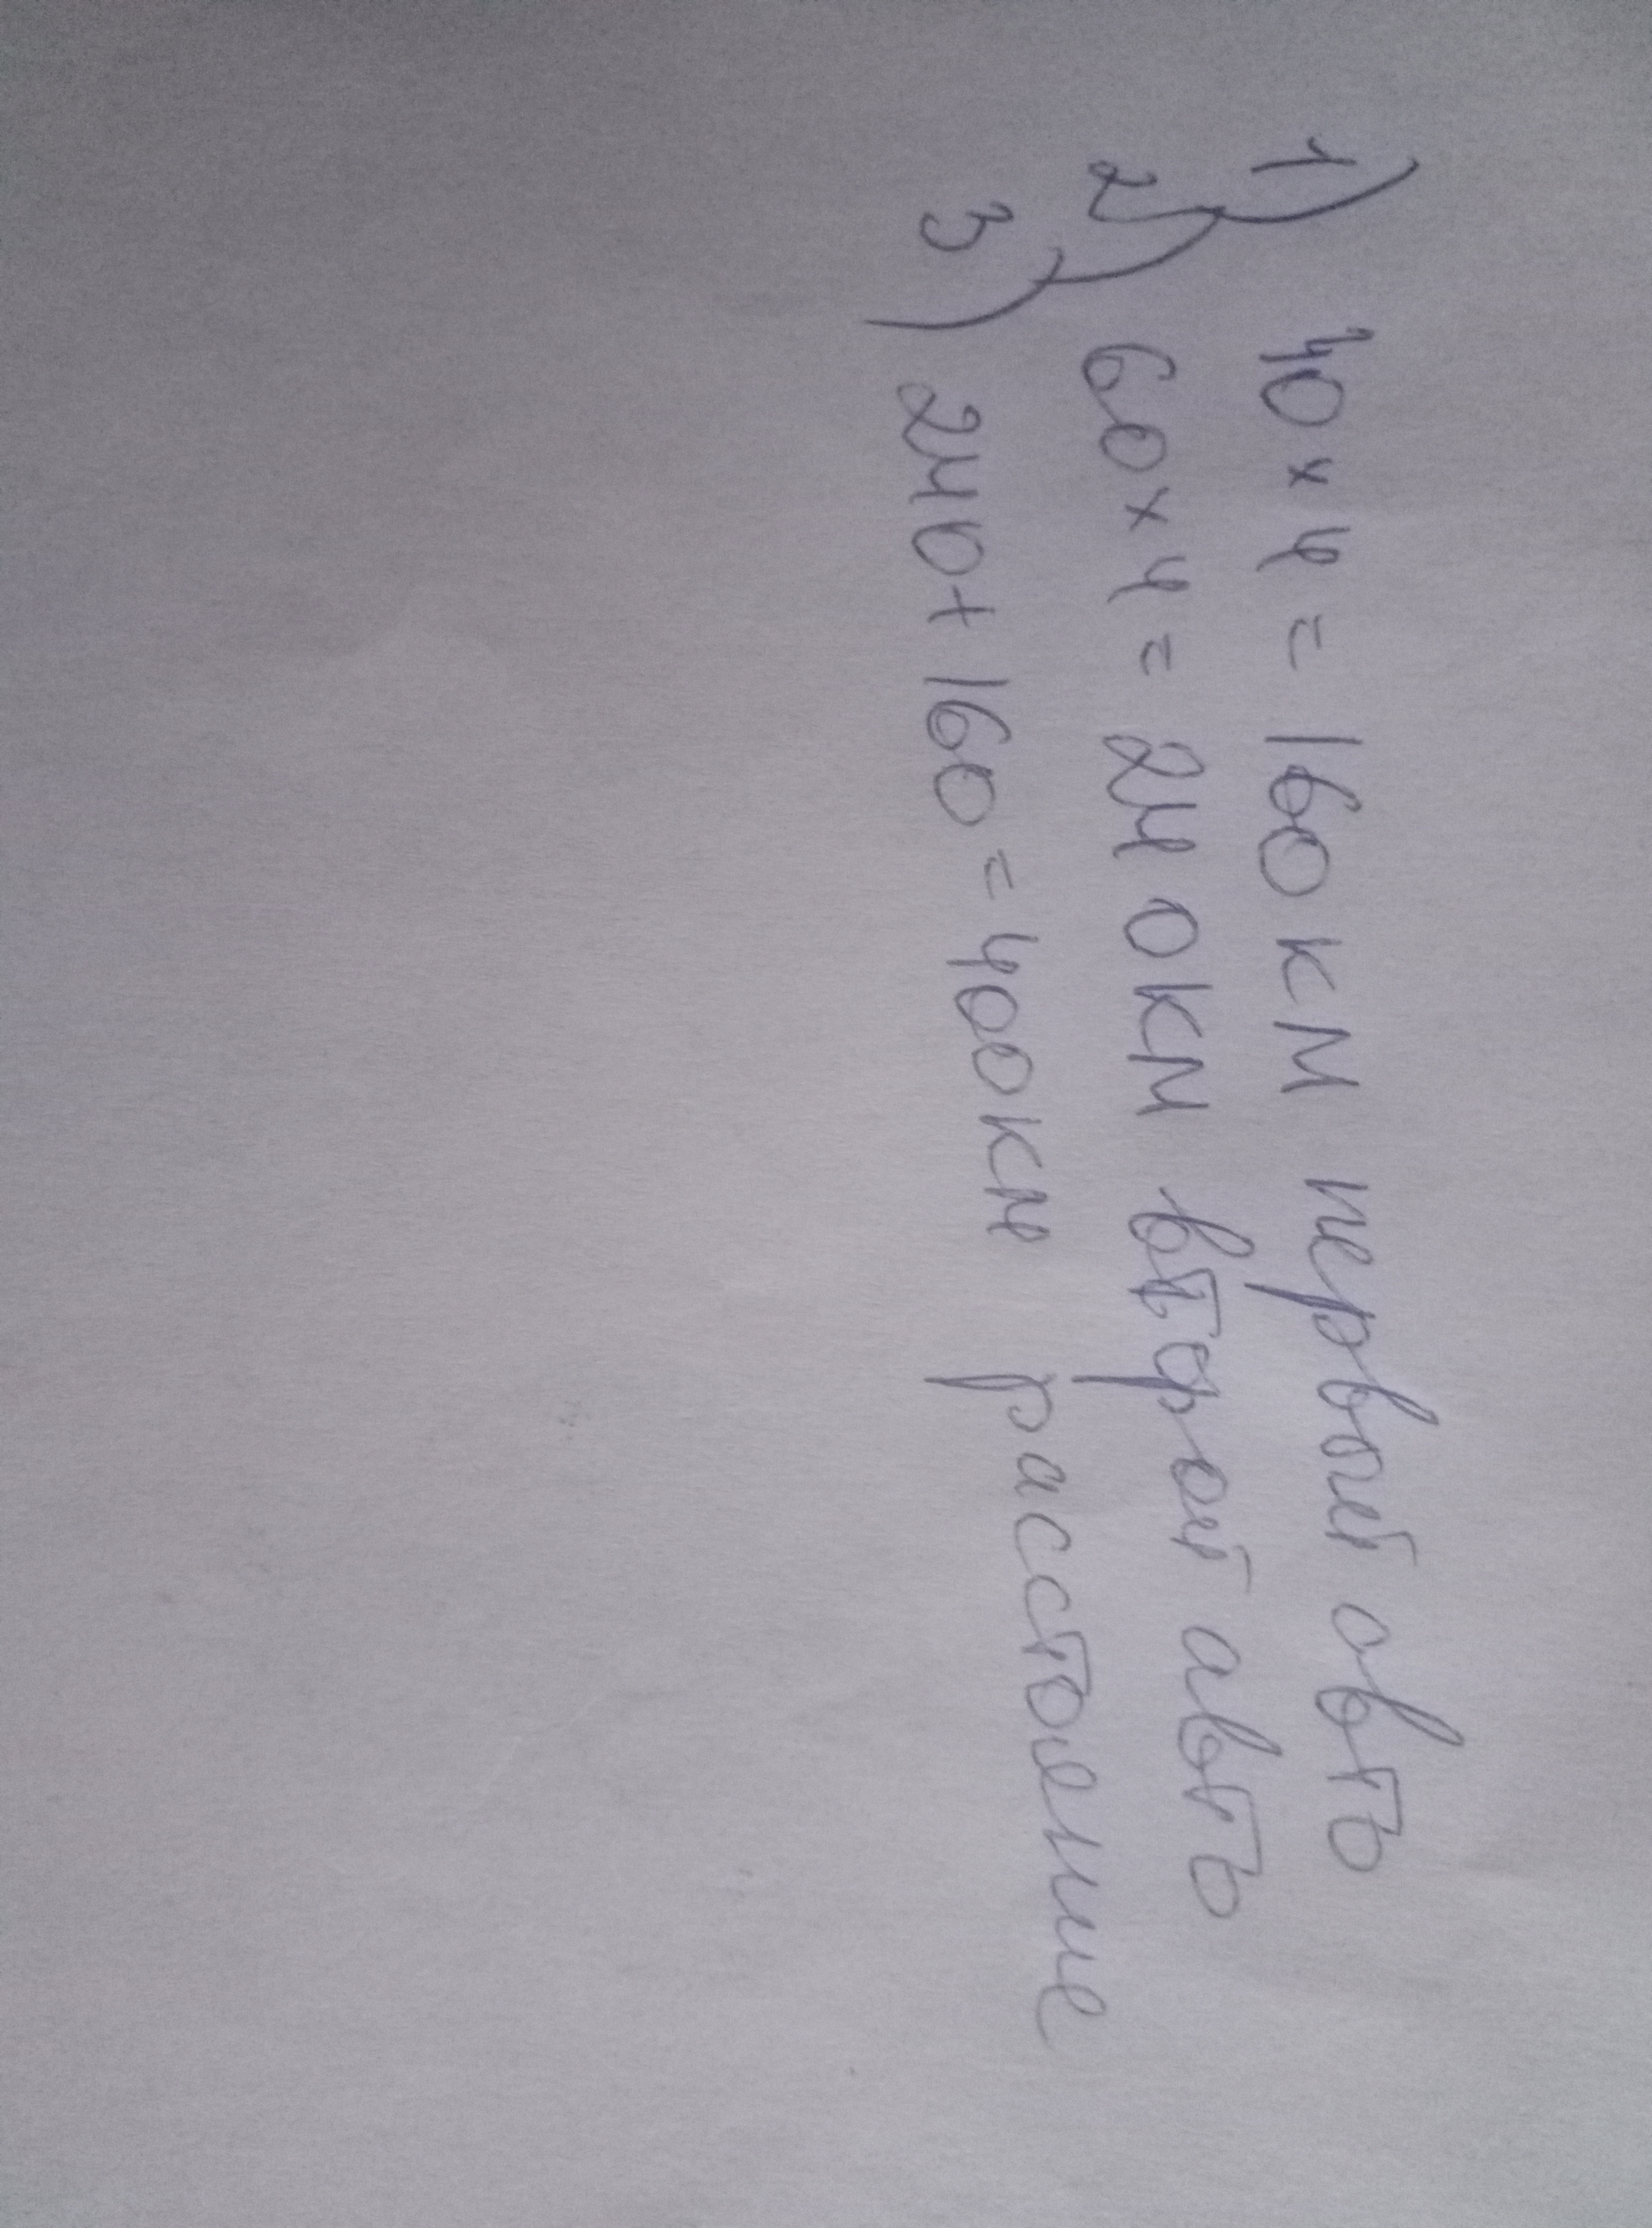 1) 40 × 4 = 160 км первый авть
2) 60 × 4 = 240 км второй авть
3) 240 + 160 = 400 км расстояние